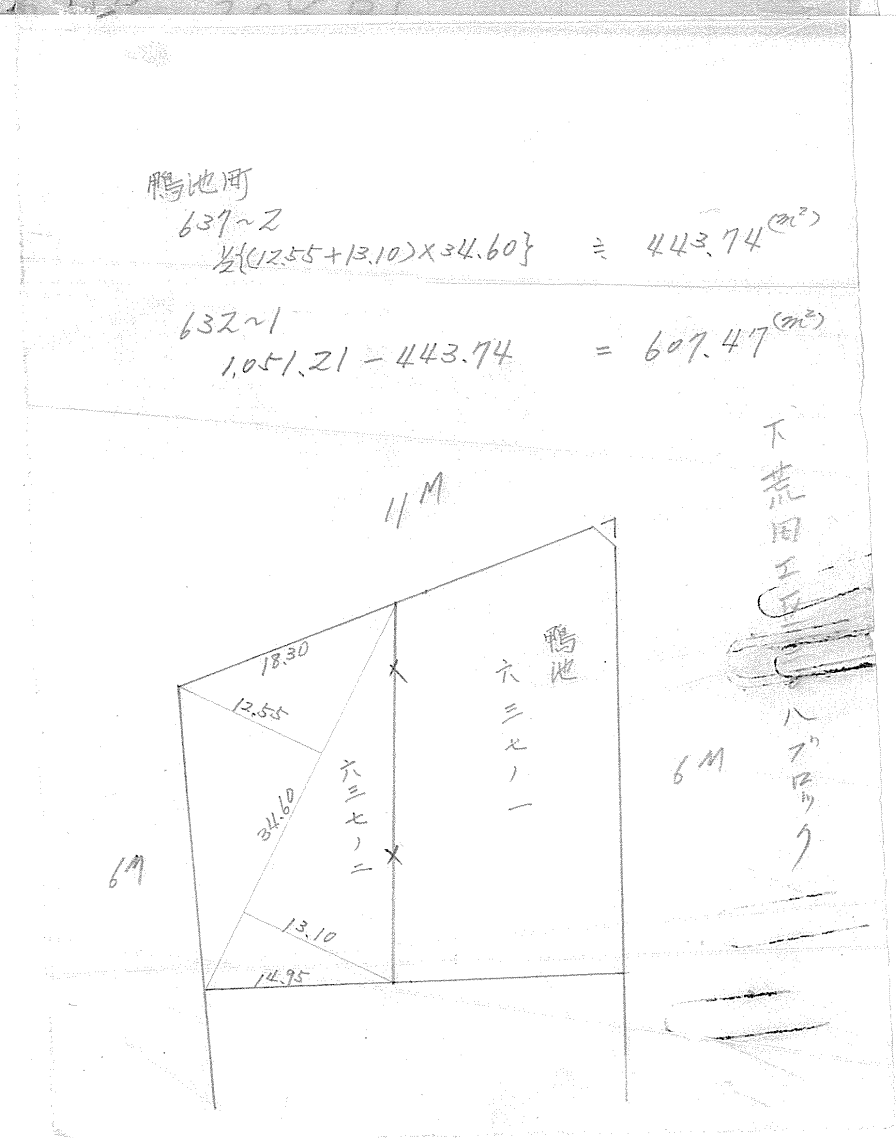 鴨池町
637~2
½{(12.55+13.10)×34.60} ≒ 443.74(m²)
637~1
1,051.21-443.74 = 607.47(m²)
11M
18.30
12.55
34.60
13.10
14.95
六三七ノ二
鴨池
六三七ノ一
6M
6M
下荒田工区
ハブロック